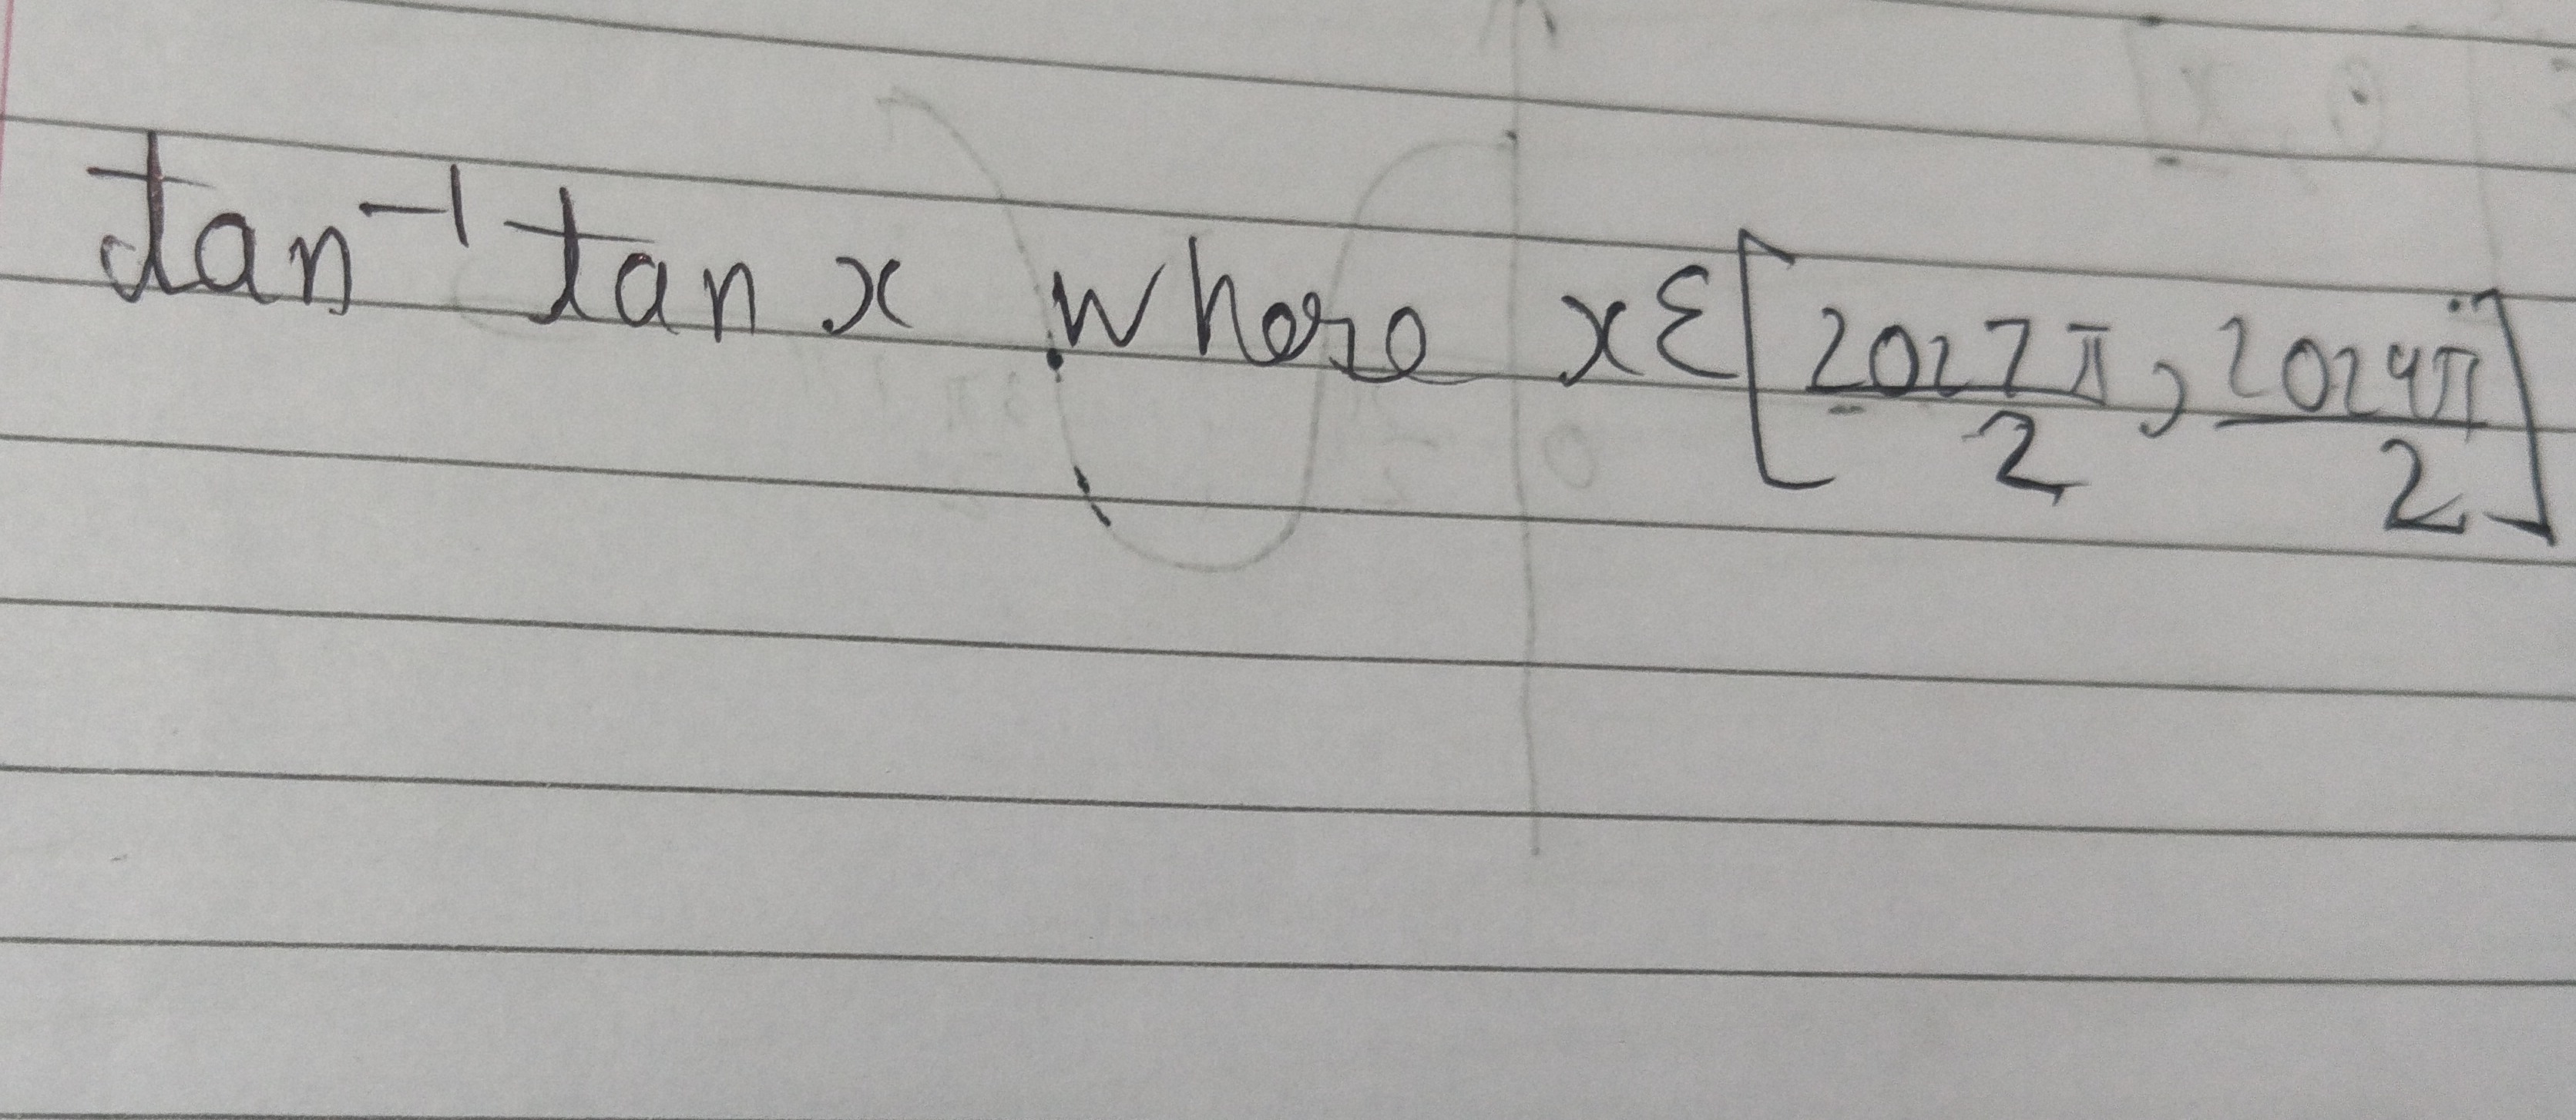 tan⁻¹ tan x where x ε [2027π/2, 2029π/2]